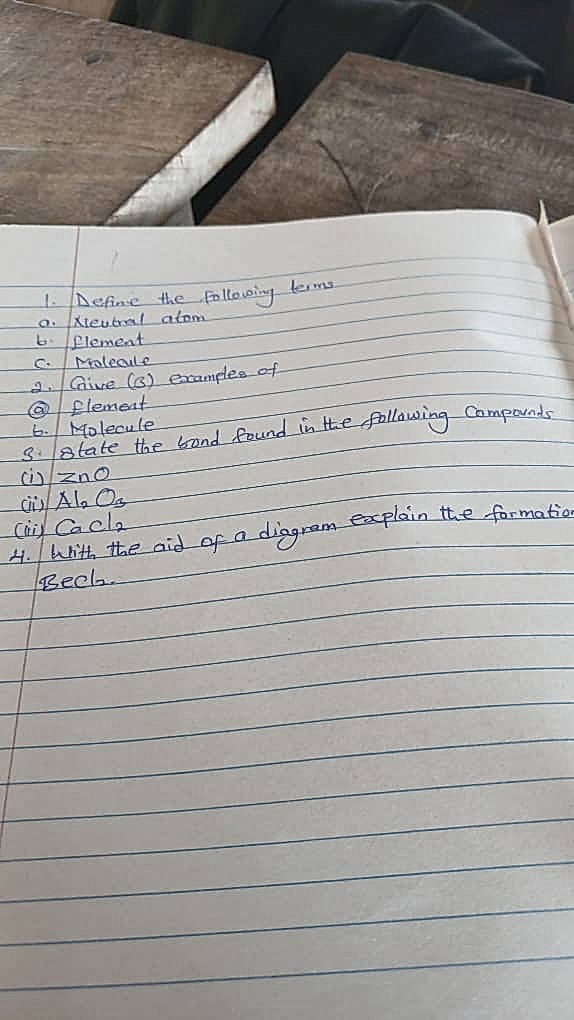 1. Define the following terms
a. Neutral atom
b. Element
c. Molecule
2. Give (3) examples of
(a) Element
b. Molecule
3. State the bond found in the following Compounds
(i) ZnO
(ii) Al₂O₃
(iii) CaCl₂
4. With the aid of a diagram explain the formation
BeCl₂.